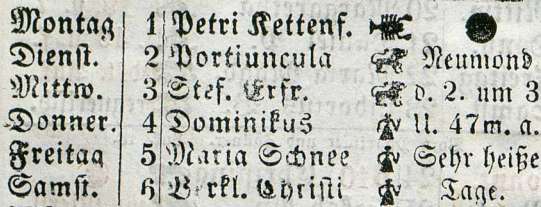 Montag 1 Petri Kettenf.
Dienst. 2 Portiuncula Neumond
Mittw. 3 Stef. Erfr. d. 2. um 3
Donner. 4 Dominikus U. 47m. a.
Freitag 5 Maria Schnee Sehr heiße
Samst. 6 Verkl. Christi Tage.